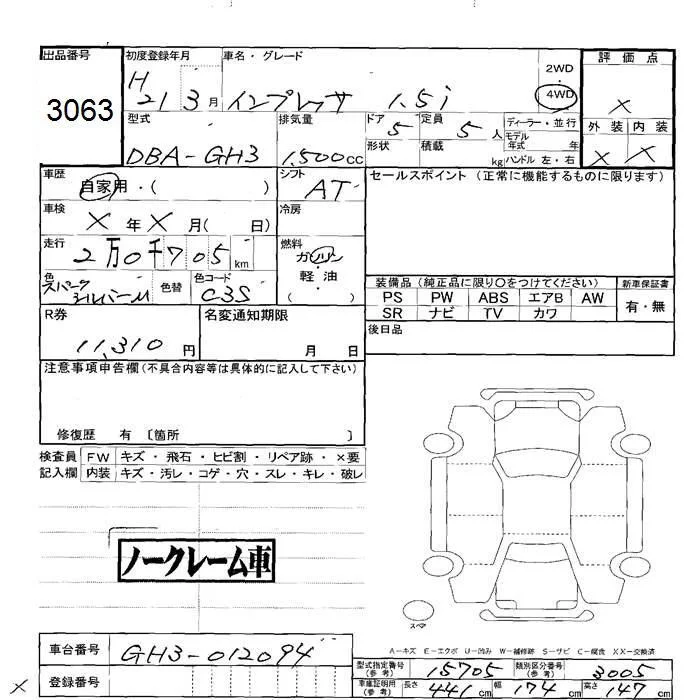 出品番号 初度登録年月 車名・グレード 評価点
3063 H 21 3月 インプレッサ 1.5i 2WD 4WD ×
型式 排気量 ドア 5 定員 5人 ディーラー・並行 外装 内装
形状 積載 kg モデル年式 年 ハンドル 左・右
DBA-GH3 1.500cc × ×
車歴 自家用・( ) シフト AT セールスポイント(正常に機能するものに限ります)
車検 ×年×月( 日) 冷房
走行 2万0千705km 燃料 ガソリン
軽油
( )
色 スパークシルバーM 色替 色コード C3S
装備品(純正品に限り○をつけてください) 新車保証書
PS PW ABS エアB AW 有・無
SR ナビ TV カワ
R券 名変通知期限 後日品
11,310円 月 日
注意事項申告欄(不具合内容等は具体的に記入して下さい)
修復歴 有 〔箇所 〕
検査員 FW キズ・飛石・ヒビ割・リペア跡・×要
記入欄 内装 キズ・汚レ・コゲ・穴・スレ・キレ・破レ
ノークレーム車
スペア
A-キズ E-エクボ U-凹み W-補修跡 S-サビ C-腐食 XX-交換済
車台番号 GH3-012094
型式指定番号(参考) 15705 類別区分番号(参考) 3005
× 登録番号
車庫証明用(参考) 長さ 441cm 幅 174cm 高さ 147cm